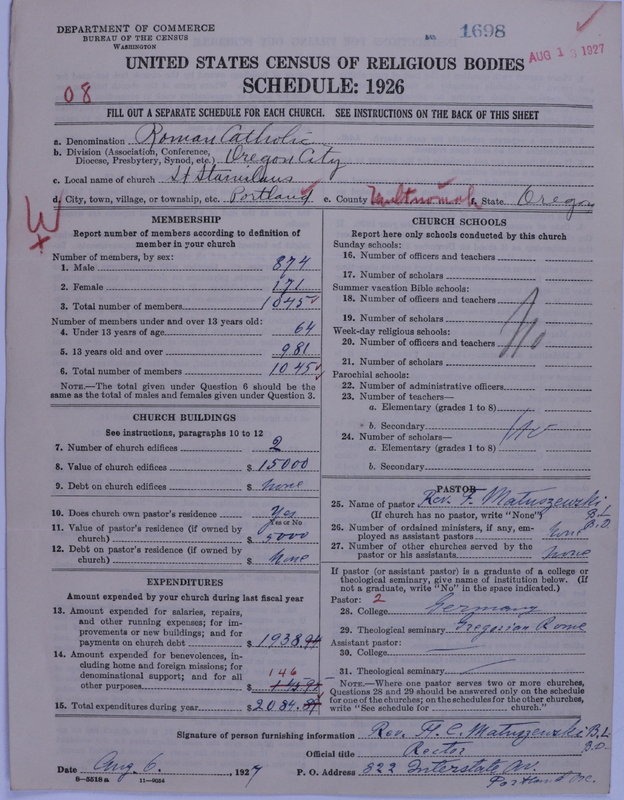 DEPARTMENT OF COMMERCE
BUREAU OF THE CENSUS
WASHINGTON
1698
AUG 1 1927
UNITED STATES CENSUS OF RELIGIOUS BODIES
SCHEDULE: 1926
08
FILL OUT A SEPARATE SCHEDULE FOR EACH CHURCH. SEE INSTRUCTIONS ON THE BACK OF THIS SHEET
a. Denomination Roman Catholic
b. Division (Association, Conference,
Diocese, Presbytery, Synod, etc.) Oregon City
c. Local name of church St Stanislaus
d. City, town, village, or township, etc. Portland e. County Multnomah f. State Oregon
W
x
MEMBERSHIP
Report number of members according to definition of
member in your church
Number of members, by sex:
1. Male 874
2. Female 171
3. Total number of members 1045
Number of members under and over 13 years old:
4. Under 13 years of age 64
5. 13 years old and over 981
6. Total number of members 1045
NOTE.—The total given under Question 6 should be
the same as the total of males and females given under Question 3.
CHURCH BUILDINGS
See instructions, paragraphs 10 to 12
7. Number of church edifices 2
8. Value of church edifices $ 15000
9. Debt on church edifices $ None
10. Does church own pastor's residence Yes
Yes or No
11. Value of pastor's residence (if owned by
church) $ 5000
12. Debt on pastor's residence (if owned by
church) $ None
EXPENDITURES
Amount expended by your church during last fiscal year
13. Amount expended for salaries, repairs,
and other running expenses; for im-
provements or new buildings; and for
payments on church debt $ 1938.94
14. Amount expended for benevolences, in-
cluding home and foreign missions; for
denominational support; and for all
other purposes $ 146
15. Total expenditures during year $ 2084.
CHURCH SCHOOLS
Report here only schools conducted by this church
Sunday schools:
16. Number of officers and teachers
17. Number of scholars
Summer vacation Bible schools:
18. Number of officers and teachers
19. Number of scholars
Week-day religious schools:
20. Number of officers and teachers
No
21. Number of scholars
Parochial schools:
22. Number of administrative officers
23. Number of teachers—
a. Elementary (grades 1 to 8)
b. Secondary
No
24. Number of scholars—
a. Elementary (grades 1 to 8)
b. Secondary
PASTOR
25. Name of pastor Rev. F. Matuszewski B.L.
(If church has no pastor, write "None") B.D.
26. Number of ordained ministers, if any, em-
ployed as assistant pastors None
27. Number of other churches served by the
pastor or his assistants None
If pastor (or assistant pastor) is a graduate of a college or
theological seminary, give name of institution below. (If
not a graduate, write "No" in the space indicated.)
Pastor: 2
28. College Germany
29. Theological seminary Gregorian Rome
Assistant pastor:
30. College
31. Theological seminary
NOTE.—Where one pastor serves two or more churches,
Questions 28 and 29 should be answered only on the schedule
for one of the churches; on the schedules for the other churches,
write "See schedule for church."
Signature of person furnishing information Rev. F. C. Matuszewski B.L.
B.D.
Official title Rector
Date Aug. 6. 1927 P. O. Address 822 Interstate Av.
Portland Ore.
8—5518 a 11—9054